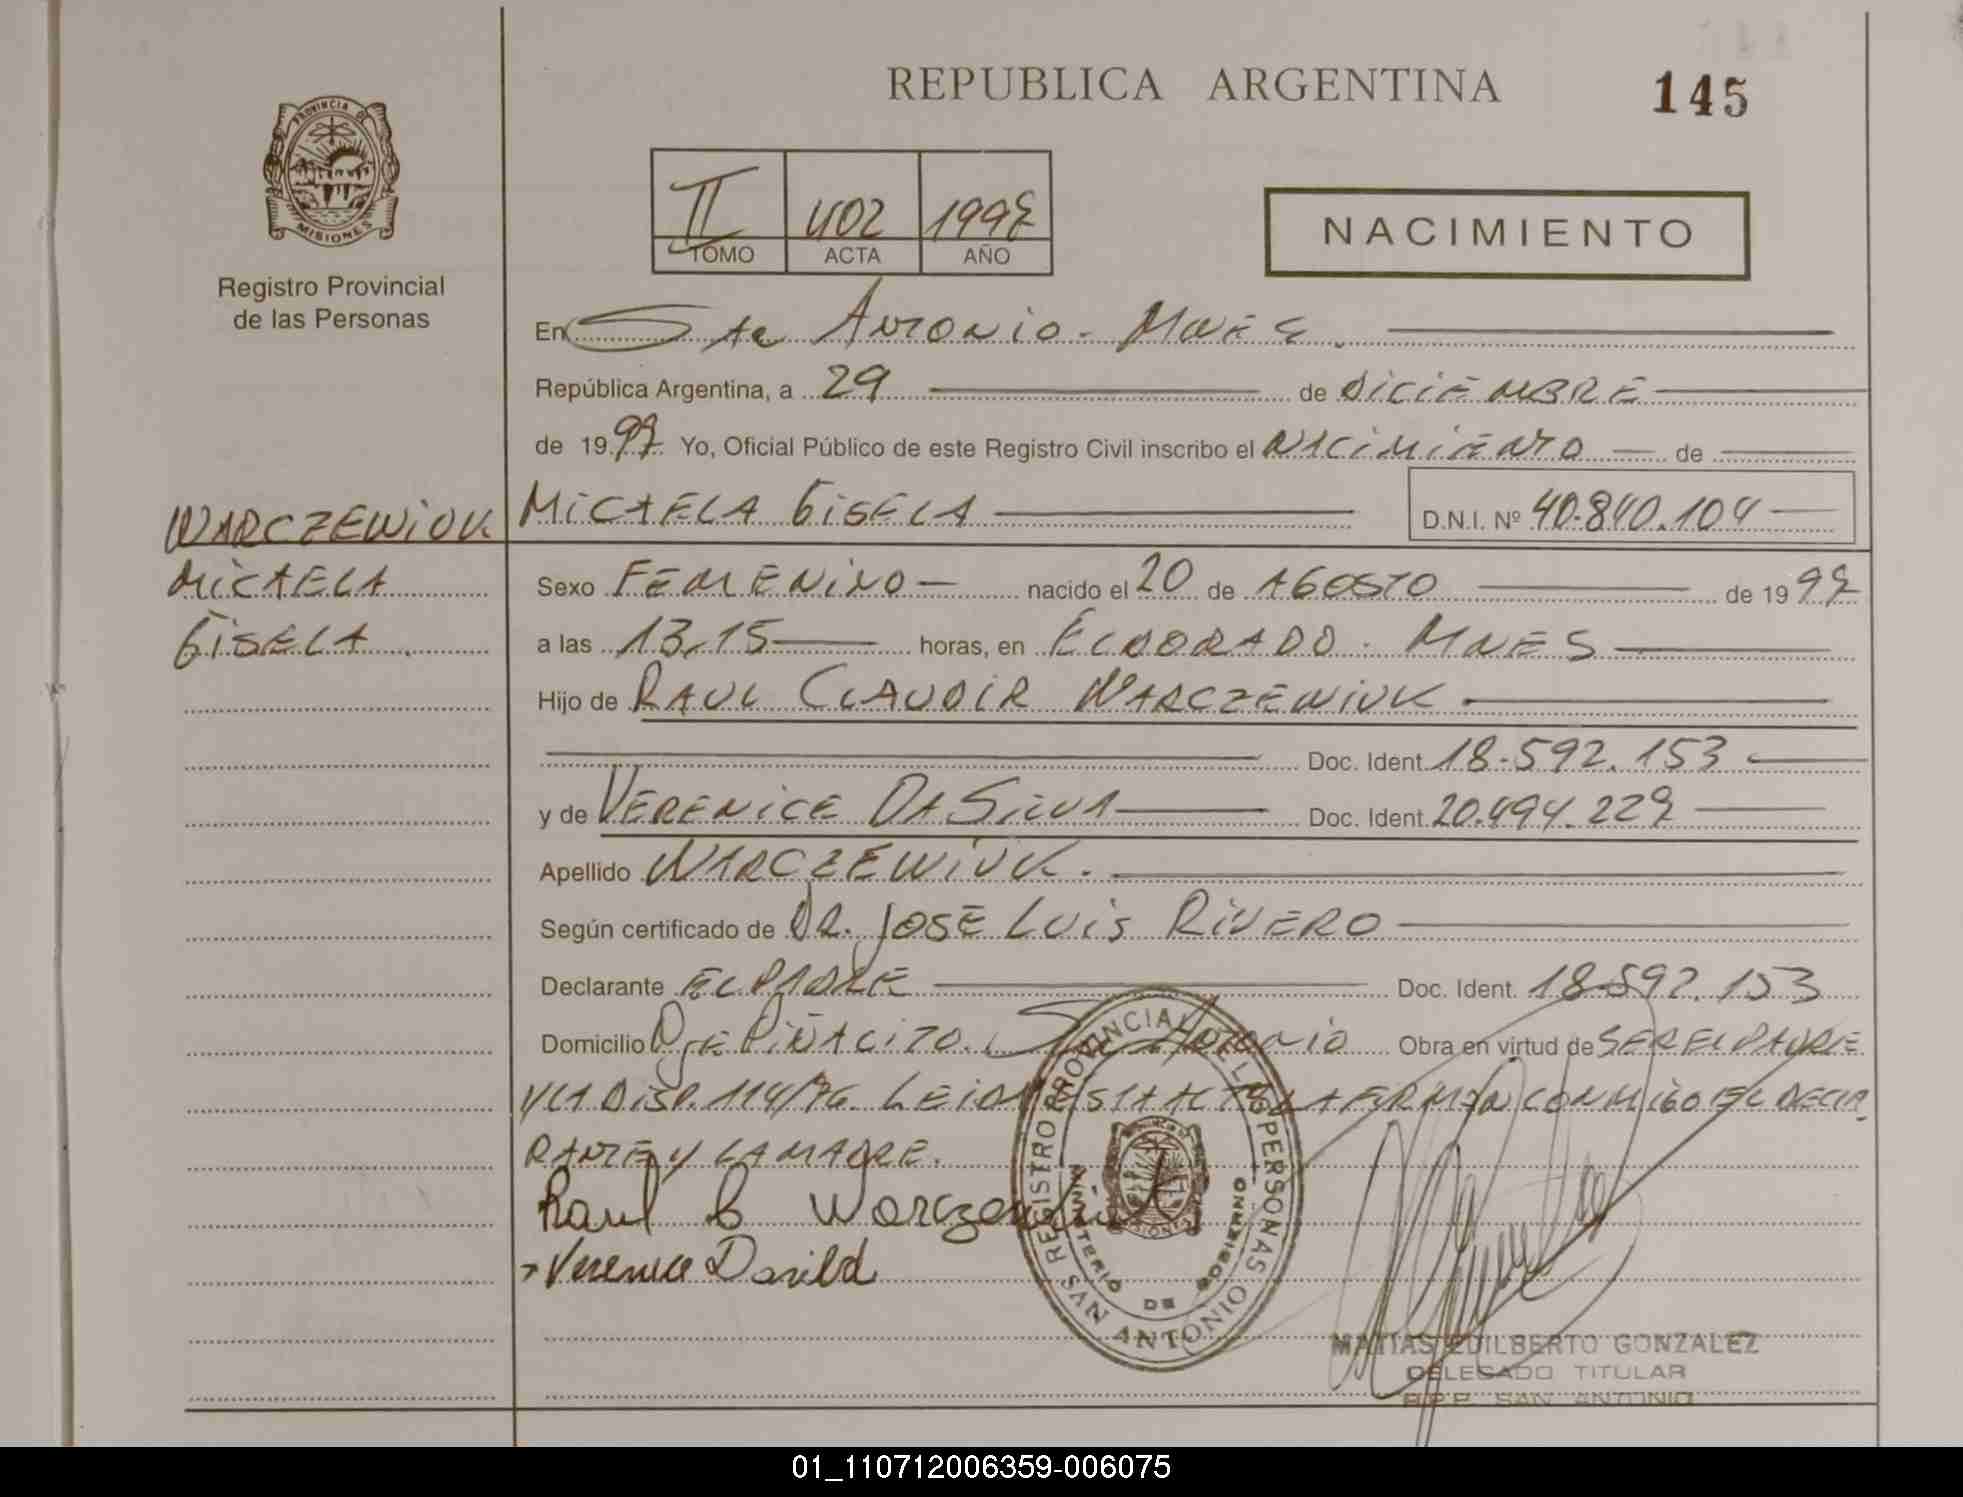 REPUBLICA ARGENTINA
145
PROVINCIA DE
MISIONES
Registro Provincial
de las Personas
II 402 1997
TOMO ACTA AÑO
NACIMIENTO
En San Antonio - Mnes.
República Argentina, a 29 de DICIEMBRE
de 1997 Yo, Oficial Público de este Registro Civil inscribo el NACIMIENTO de
MICAELA GISELA D.N.I. Nº 40.840.104
WARCZEWIUK
MICAELA
GISELA
Sexo FEMENINO nacido el 20 de AGOSTO de 1997
a las 13,15 horas, en ELDORADO - MNES
Hijo de RAUL CLAUDIR WARCZEWIUK
Doc. Ident 18.592.153
y de VERENICE DA SILVA Doc. Ident. 20.494.229
Apellido WARCZEWIUK.
Según certificado de DR. JOSE LUIS RIVERO
Declarante EL PADRE Doc. Ident. 18.592.153
Domicilio PJE PIÑALCITO. San Antonio Obra en virtud de SER EL PADRE
Y LA DISP. 114/96. LEIDA ESTA ACTA LA FIRMAN CONMIGO EL DECLA
RANTE Y LA MADRE.
Raul C Warczewiuk
Verenice Dasilva
REGISTRO PROVINCIAL DE LAS PERSONAS
SAN ANTONIO
MINISTERIO DE GOBIERNO
MISIONES
MATIAS EDILBERTO GONZALEZ
DELEGADO TITULAR
R.P.P. SAN ANTONIO
01_110712006359-006075